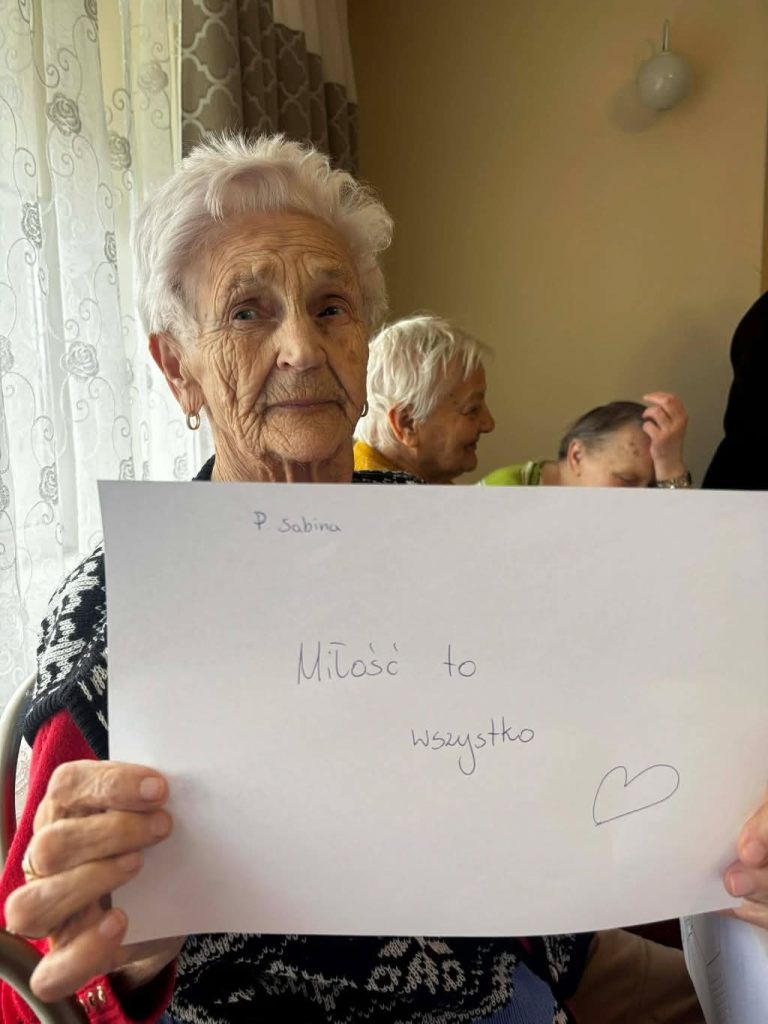 P. Sabina
Miłość to
wszystko